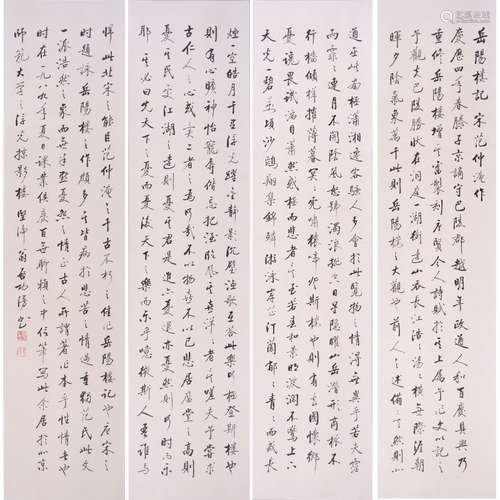 岳陽樓記 宋 范仲淹作
慶曆四年春滕子京謫守巴陵郡越明年政通人和百廢具興乃
重修岳陽樓增其舊制刻唐賢今人詩賦於其上屬予作文以記之
予觀夫巴陵勝狀在洞庭一湖銜遠山吞長江浩浩湯湯橫無際涯朝
暉夕陰氣象萬千此則岳陽樓之大觀也前人之述備矣然則北
通巫峽南極瀟湘遷客騷人多會於此覽物之情得無異乎若夫霪
雨霏霏連月不開陰風怒號濁浪排空日星隱曜山岳潛形商旅不
行檣傾楫摧薄暮冥冥虎嘯猿啼登斯樓也則有去國懷鄉
憂讒畏譏滿目蕭然感極而悲者矣至若春和景明波瀾不驚上下
天光一碧萬頃沙鷗翔集錦鱗游泳岸芷汀蘭郁郁青青而或長
煙一空皓月千里浮光躍金靜影沉璧漁歌互答此樂何極登斯樓也
則有心曠神怡寵辱偕忘把酒臨風其喜洋洋者矣嗟夫予嘗求
古仁人之心或異二者之為何哉不以物喜不以己悲居廟堂之高則
憂其民處江湖之遠則憂其君是進亦憂退亦憂然則何時而樂
耶其必曰先天下之憂而憂後天下之樂而樂乎噫微斯人吾誰與
歸此北宋之能臣范仲淹之千古不朽之佳作岳陽樓記也唐宋之
時題詠岳陽樓之作頗多其皆病於悲苦之情范氏此文
一派浩然之象而無半點憂之情正古人所謂著作本乎性情者也
時在一九八九年夏日課業俱廢百無聊賴之中信筆寫此余居於北京
師範大學之浮光掠影樓 堅淨翁啟功謹書